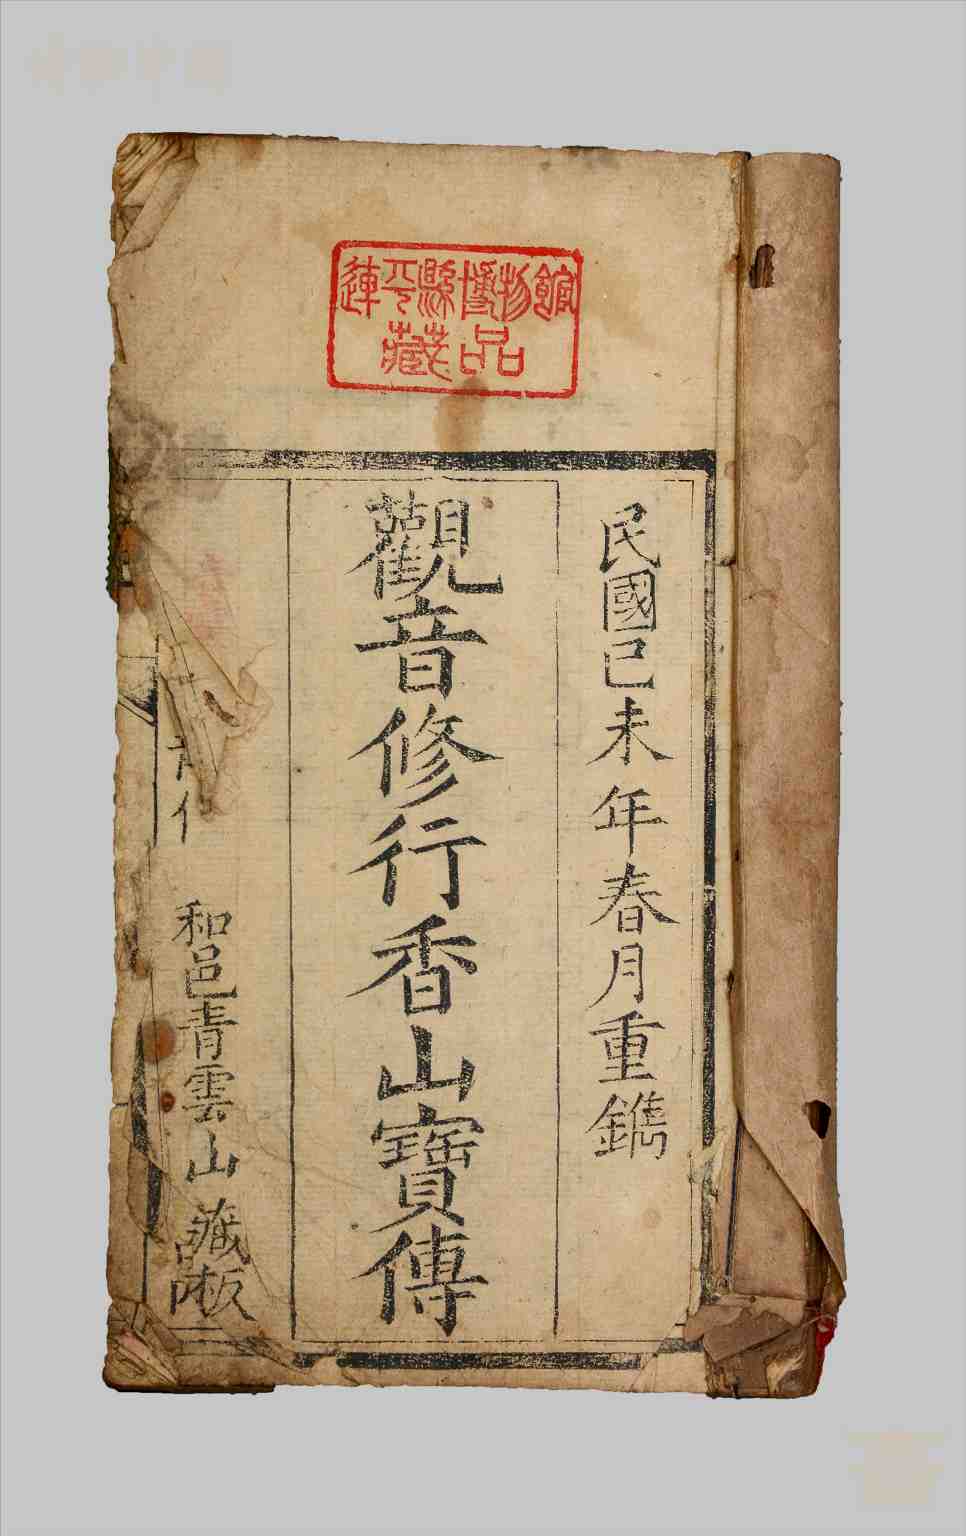 連平縣博物館
藏品
民國己未年春月重鐫
觀音修行香山寶傳
和邑青雲山藏板